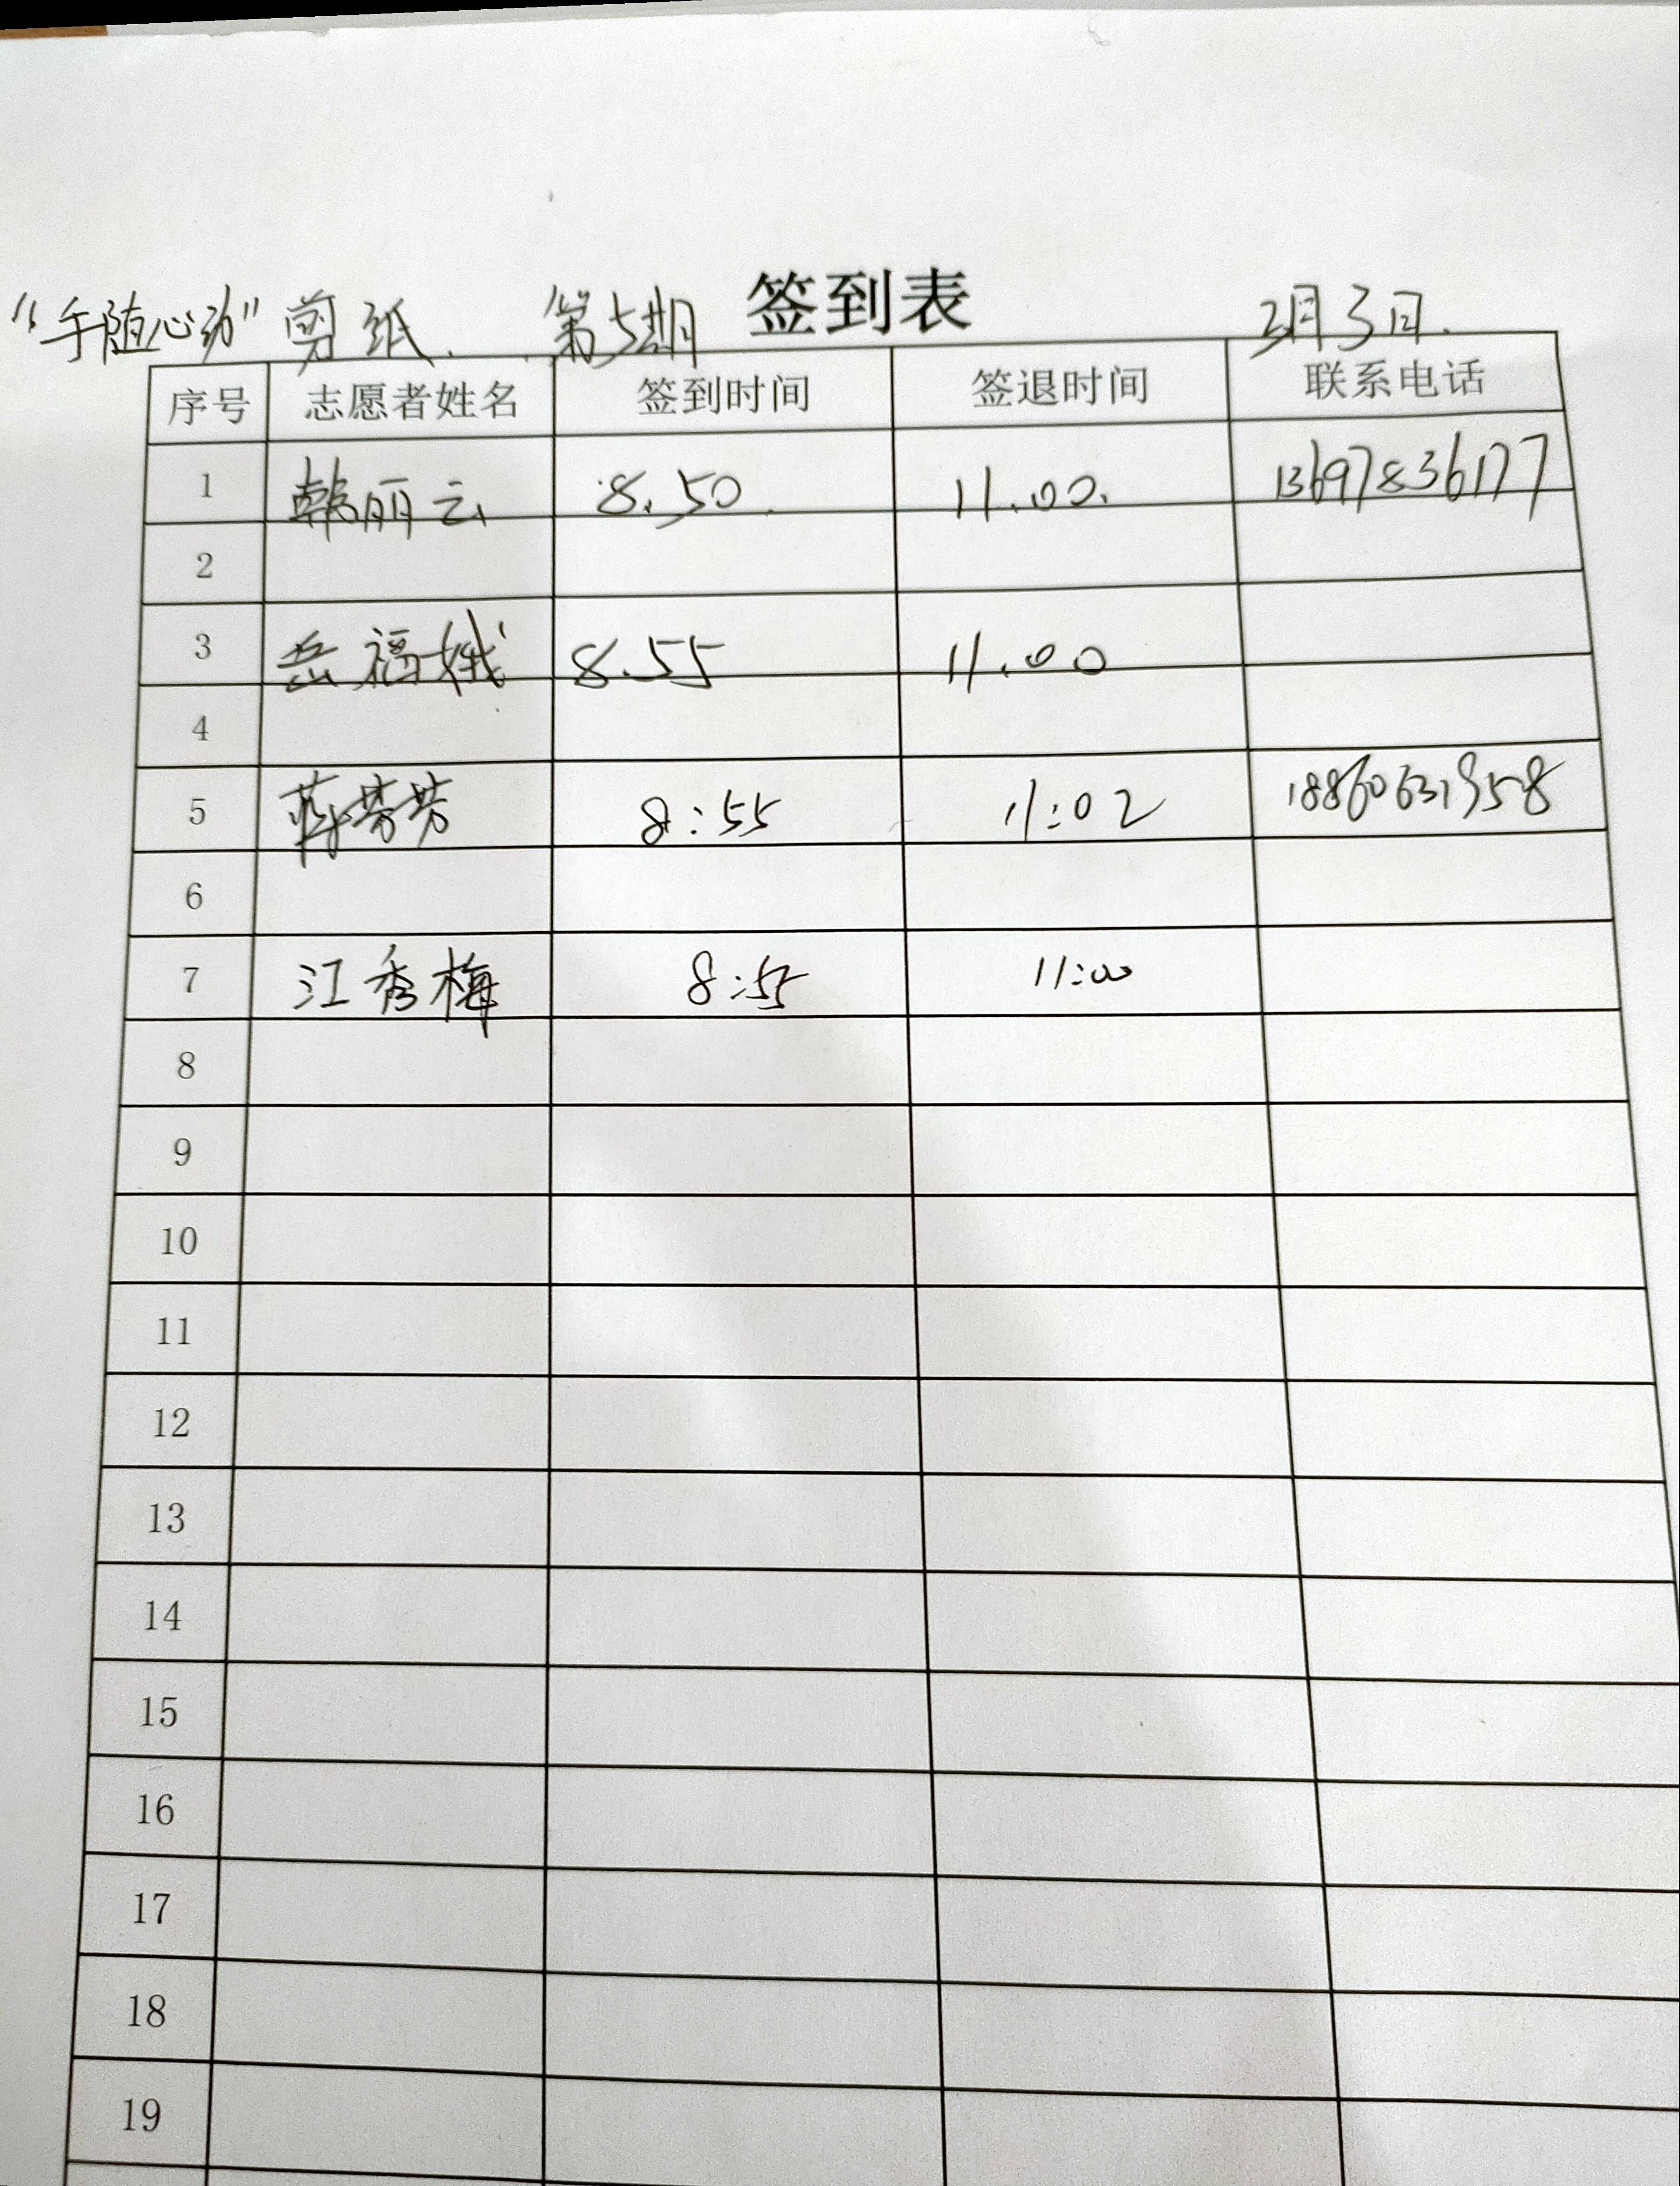 “手随心动”剪纸. 第5期 签到表 2月3日.
序号 志愿者姓名 签到时间 签退时间 联系电话
1 韩丽云 8.50 11.00. 13697836177
2
3 岳福娥 8.55 11.00
4
5 芳芳 8:55 11:02 18860631958
6
7 江秀梅 8:55 11:00
8
9
10
11
12
13
14
15
16
17
18
19